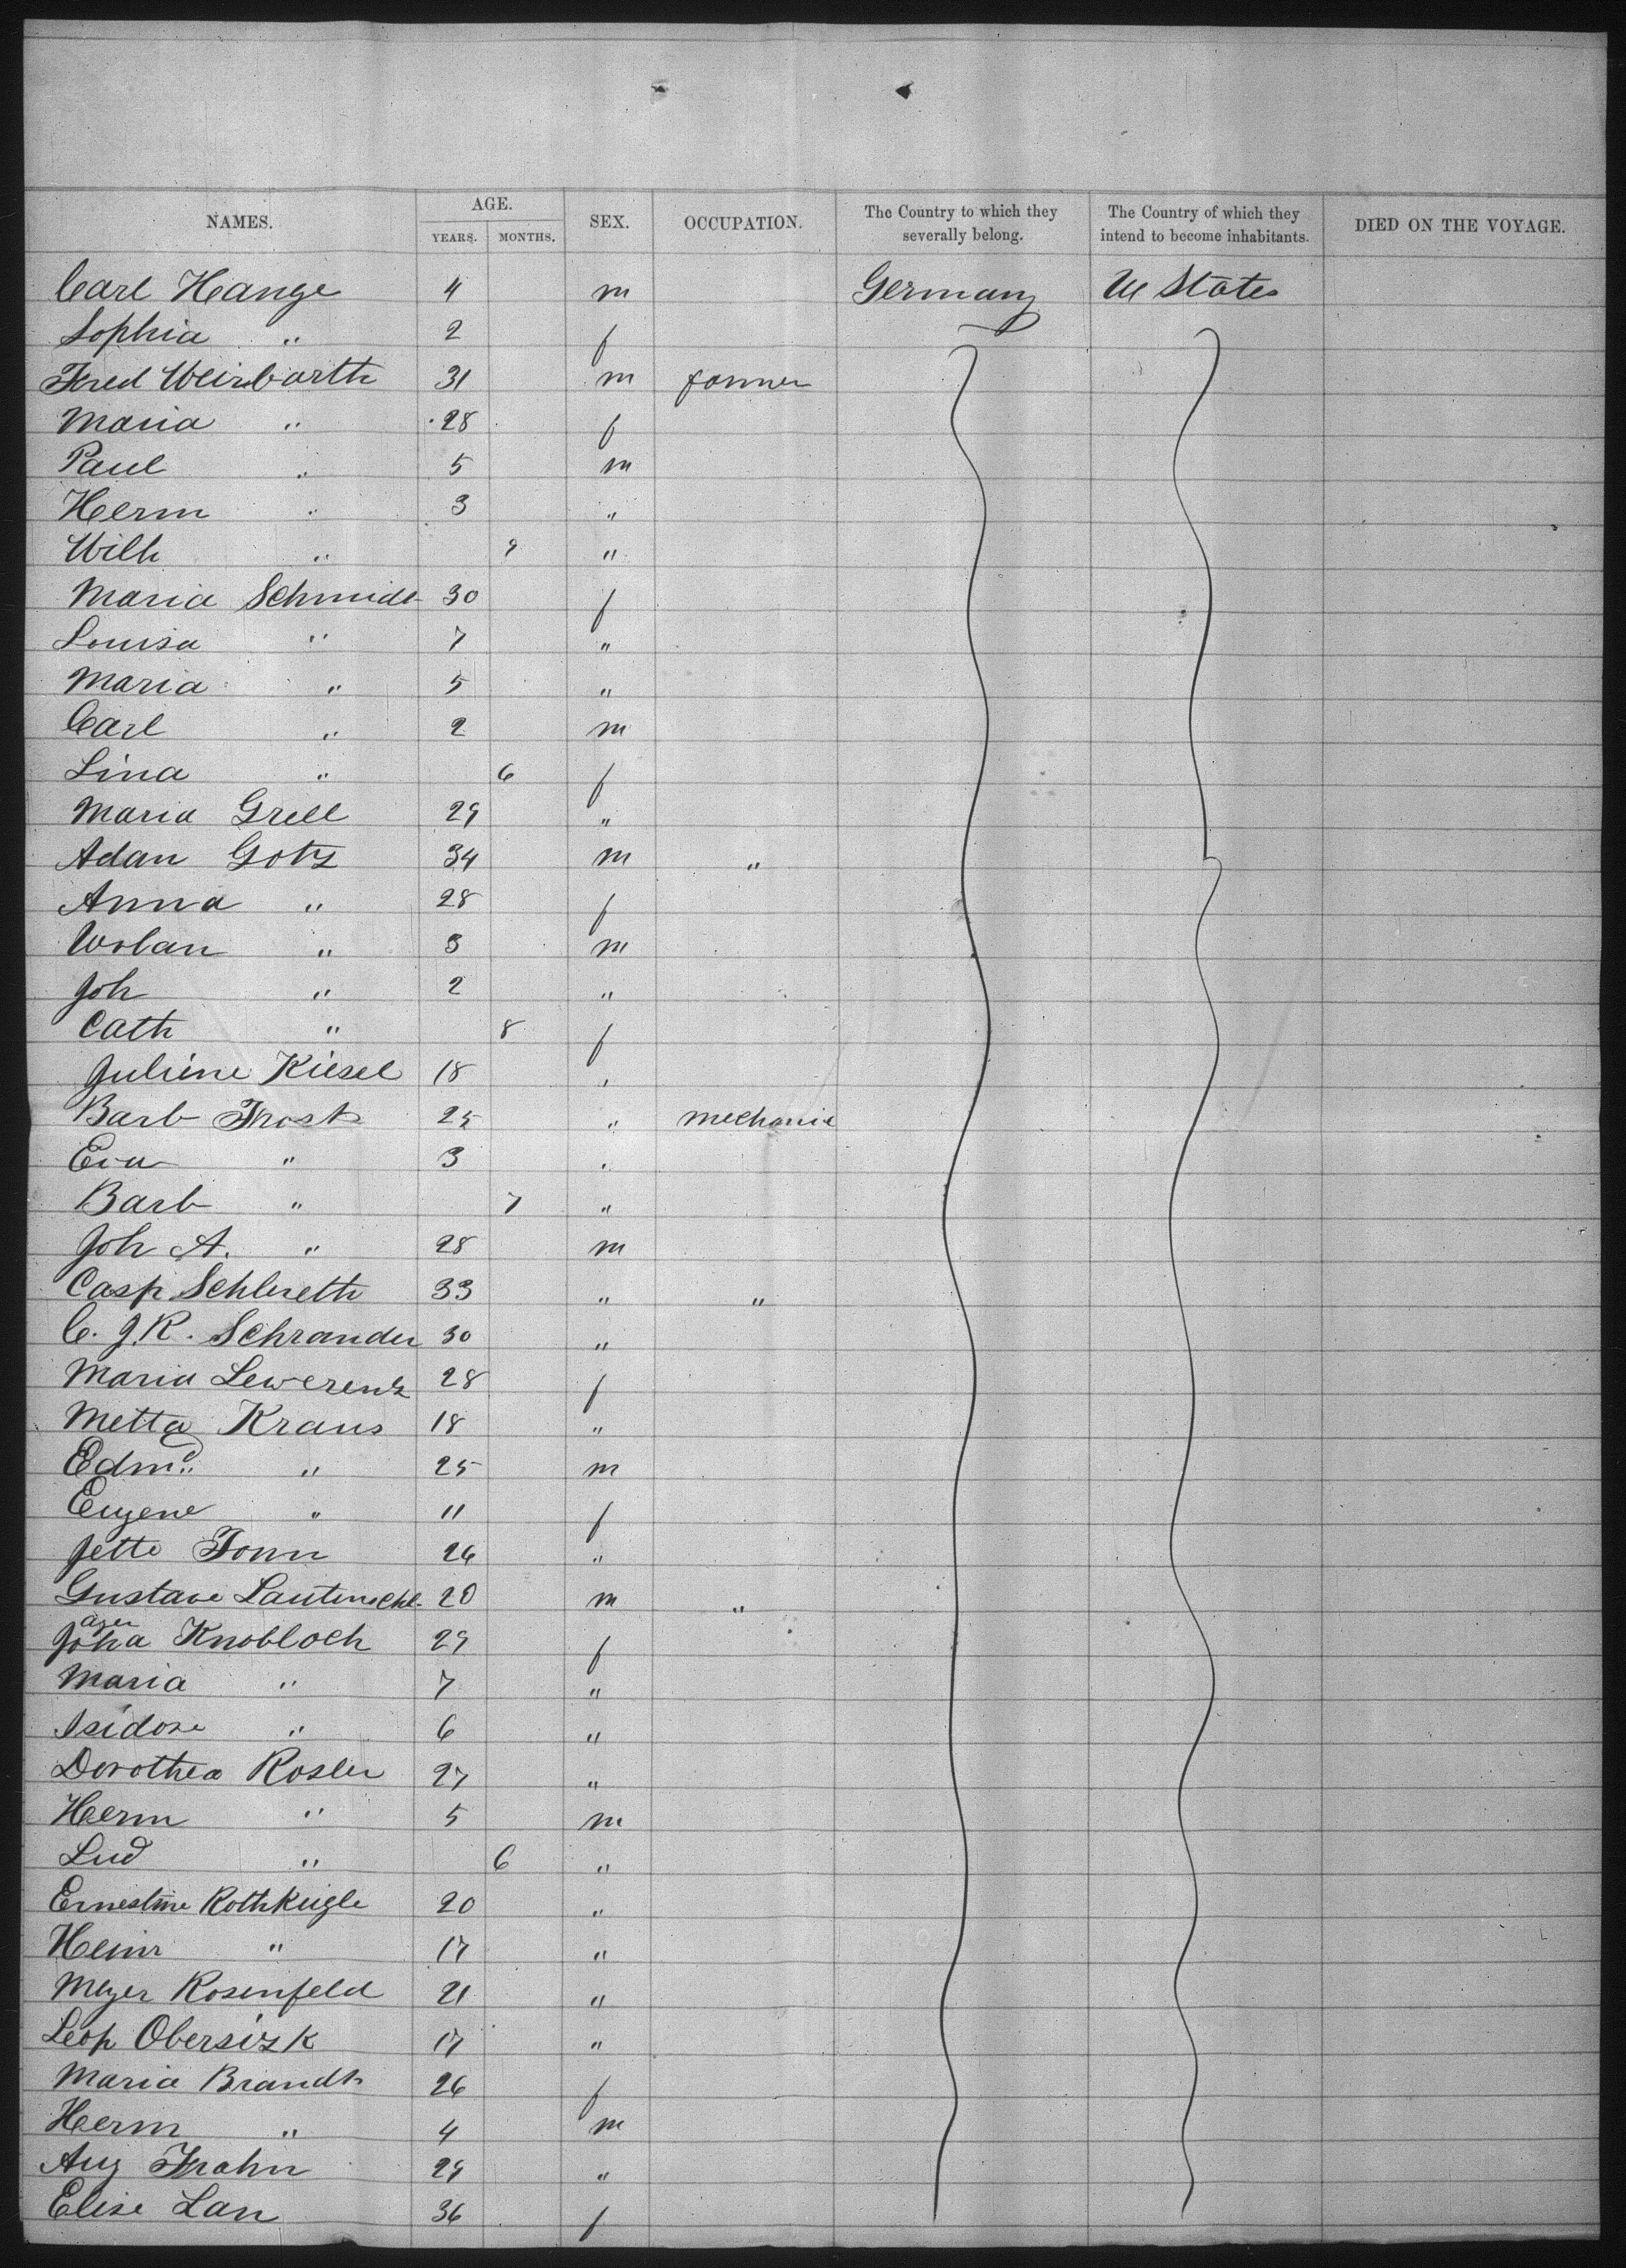 NAMES. AGE. SEX. OCCUPATION. The Country to which they severally belong. The Country of which they intend to become inhabitants. DIED ON THE VOYAGE.
YEARS. MONTHS.
Carl Hange 4 m Germany U States
Sophia " 2 f
Fred Weirbarth 31 m farmer
Maria " 28 f
Paul " 5 m
Herm " 3 "
Wilh " 9 "
Maria Schmidt 30 f
Louisa " 7 "
Maria " 5 "
Carl " 2 m
Lina " 6 f
Maria Grell 29 "
Adan Gotz 34 m "
Anna " 28 f
Wolan " 3 m
Joh " 2 "
Cath " 8 f
Juliene Kiesel 18 "
Barb Frost 25 " mechanic
Eva " 3 "
Barb " 7 "
Joh A. " 28 m
Casp Schlereth 33 " "
C. J. R. Schrander 30 "
Maria Lewerentz 28 f
Metta Kraus 18 "
Edmd " 25 m
Eugene " 11 f
Jette Tonn 26 "
Gustave Lautenschl- 20 m "
ager
Joha Knobloch 29 f
Maria " 7 "
Isidore " 6 "
Dorothea Rosler 27 "
Herm " 5 m
Lud " 6 "
Ernestine Rothkugle 20 "
Heinr " 17 "
Meyer Rosenfeld 21 "
Leop Obersizk 17 "
Maria Brandt 26 f
Herm " 4 m
Aug Frahn 29 "
Elise Lan 36 f